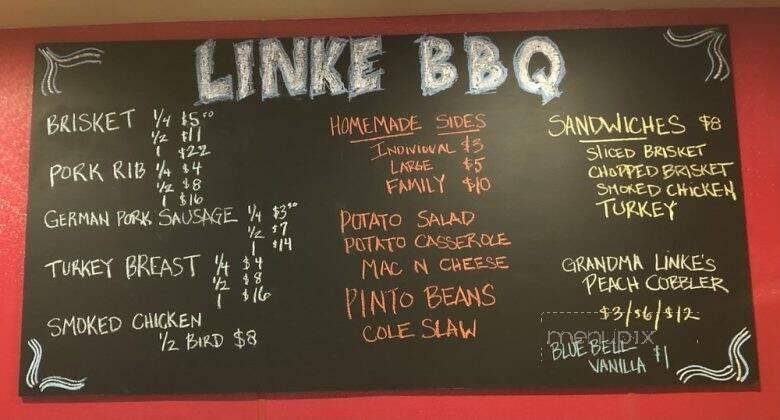 LINKE BBQ
BRISKET 1/4 $5.50
1/2 $11
1 $22
PORK RIB 1/4 $4
1/2 $8
1 $16
GERMAN PORK SAUSAGE 1/4 $3.50
1/2 $7
1 $14
TURKEY BREAST 1/4 $4
1/2 $8
1 $16
SMOKED CHICKEN
1/2 BIRD $8
HOMEMADE SIDES
INDIVIDUAL $3
LARGE $5
FAMILY $10
POTATO SALAD
POTATO CASSEROLE
MAC N CHEESE
PINTO BEANS
COLE SLAW
SANDWICHES $8
SLICED BRISKET
CHOPPED BRISKET
SMOKED CHICKEN
TURKEY
GRANDMA LINKE'S
PEACH COBBLER
$3/$6/$12
menupix
BLUE BELL
VANILLA $1